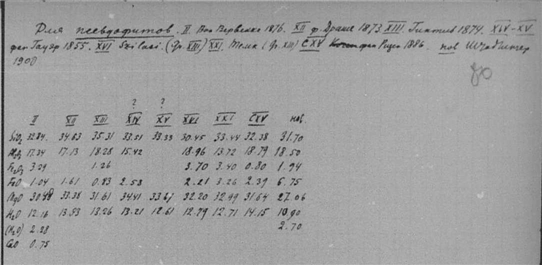 Для псевдофитов. II. Вон 1876. XII ф. Драше 1873 XIII 1874. XIV-XV
фон Гауэр 1855. XVI (Гр. XIII) XXI. (Гр. XII) CXV фон 1886. нов.
1900
? ?
II XII XIII XIV XV XVI XXI CXV нов.
SiO₂ 32.84 34.63 35.31 33.51 33.33 30.45 33.44 32.38 31.70
Al₂O₃ 17.34 17.13 18.28 15.42 18.96 13.72 18.79 18.50
Fe₂O₃ 3.09 1.26 3.70 3.40 0.80 1.94
FeO 1.04 1.61 0.83 2.58 2.21 3.26 2.39 6.75
MgO 33.38 31.61 34.41 33.61 32.20 32.49 31.64 27.06
H₂O 12.16 13.53 13.26 13.21 12.61 12.79 12.71 14.15 10.90
(H₂O) 2.28 2.70
CaO 0.75